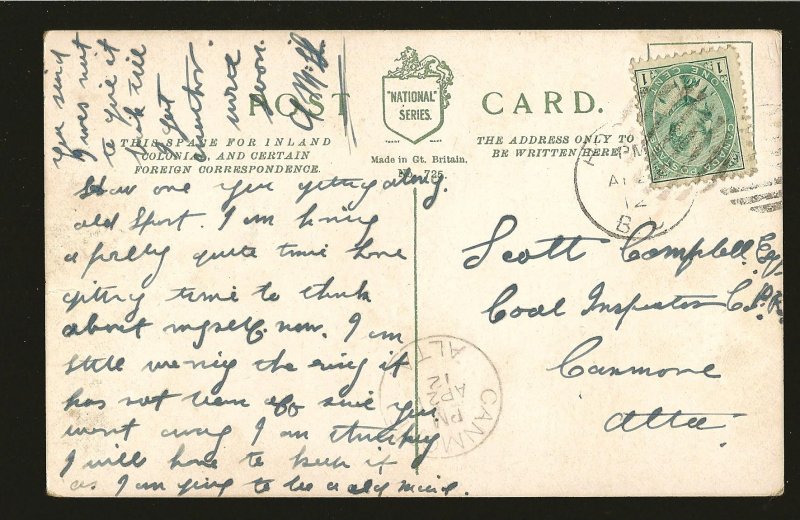 POST CARD.
"NATIONAL"
SERIES.
TRADE MARK
THIS SPACE FOR INLAND
COLONIAL, AND CERTAIN
FOREIGN CORRESPONDENCE.
Made in Gt. Britain.
No. 725.
THE ADDRESS ONLY TO
BE WRITTEN HERE.
How are you getting along
old Sport. I am having
a pretty quite time here
getting time to think
about myself now. I am
still wearing the ring it
has not been off since you
went away I am thinking
I will have to keep it
as I am going to be a old maid.
you said
I was not
to give it
till
I get
another
write
soon.
Scott Campbell Esq,
Coal Inspector C.P.R.
Canmore
Alta.
ONE CENT
1 1
PM
AP
12
B C
CANMORE
PM
AP 2
12
ALTA